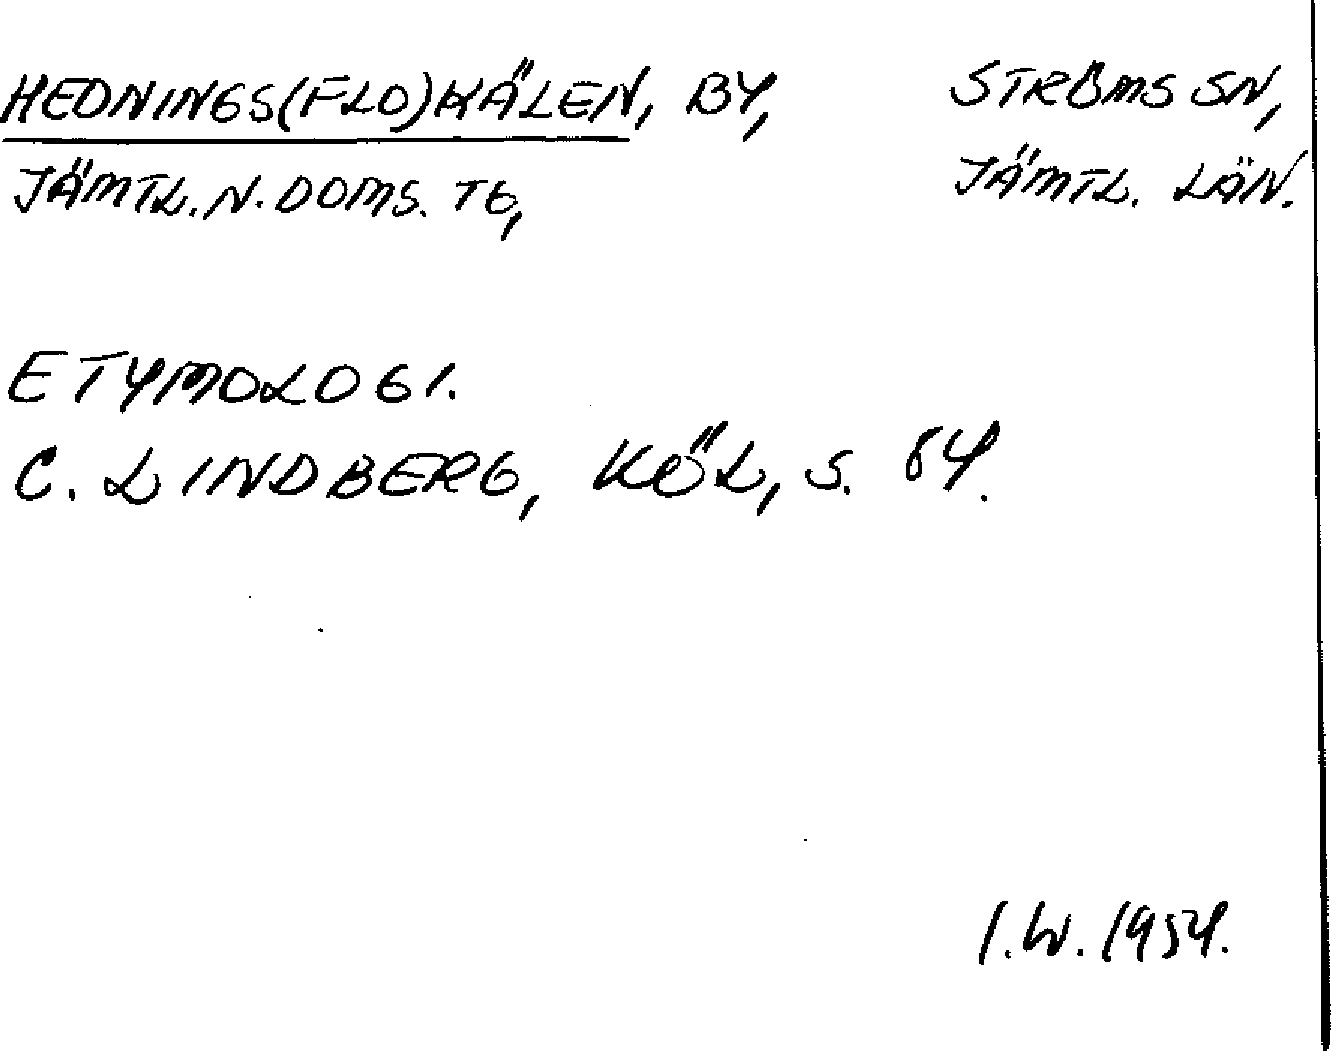 HEDNINGS(FLO)KÄLEN, BY, STRÖMS SN,
JÄMTL. N. DOMS. TG, JÄMTL. LÄN.
ETYMOLOGI.
C. LINDBERG, KÖL, S. 84.
I.W. 1954.